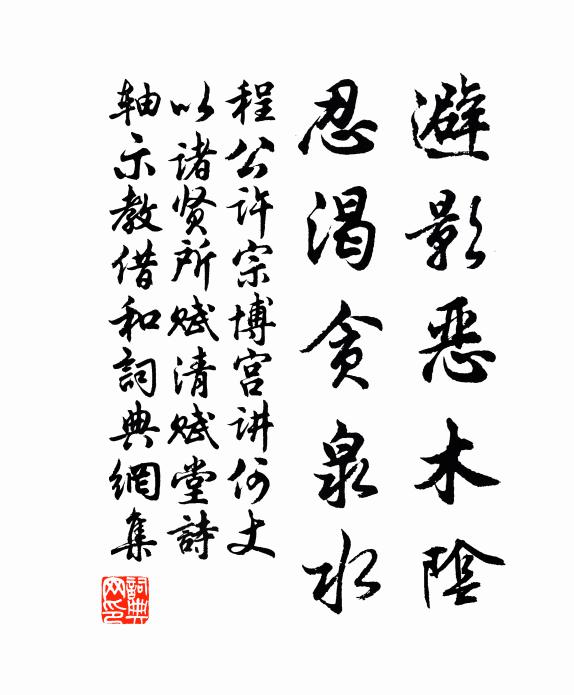 避影恶木陰
忍渴贪泉水
程公许宗博宫讲何丈
以诸贤所赋清赋堂詩
轴示教借和詞典網集
詞典网印